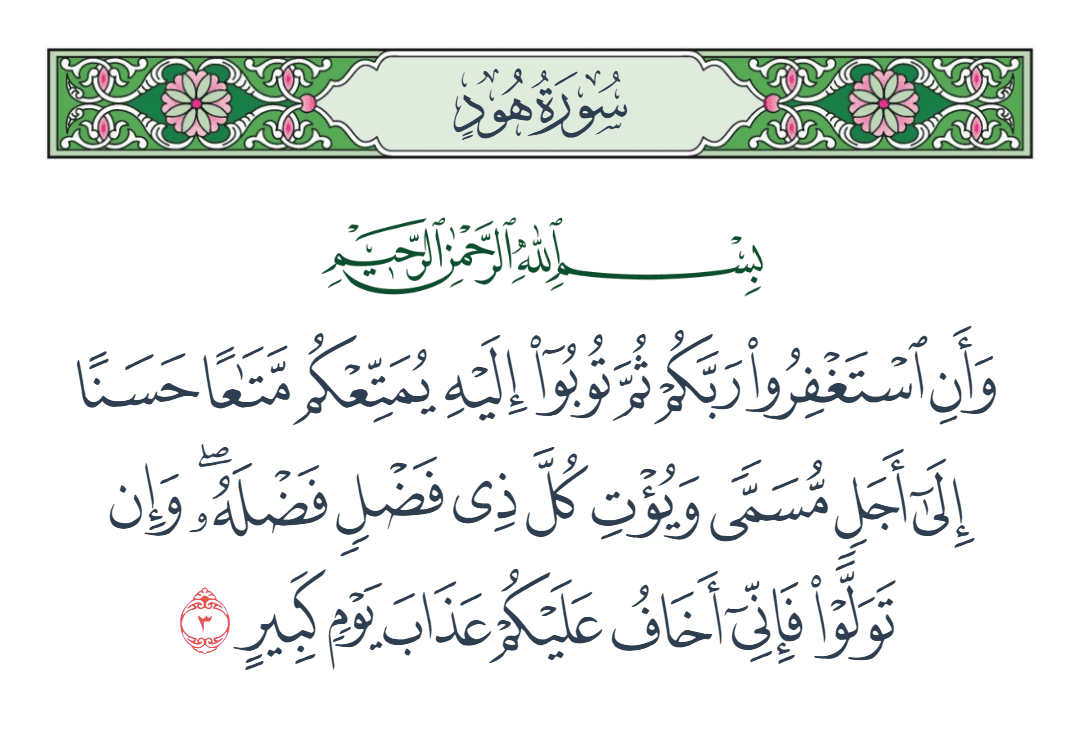 سُورَةُ هُودٍ
بِسْمِ ٱللَّهِ ٱلرَّحْمَٰنِ ٱلرَّحِيمِ
وَأَنِ ٱسْتَغْفِرُوا۟ رَبَّكُمْ ثُمَّ تُوبُوٓا۟ إِلَيْهِ يُمَتِّعْكُم مَّتَـٰعًا حَسَنًا
إِلَىٰٓ أَجَلٍ مُّسَمًّى وَيُؤْتِ كُلَّ ذِى فَضْلٍ فَضْلَهُۥ ۖ وَإِن
تَوَلَّوْا۟ فَإِنِّىٓ أَخَافُ عَلَيْكُمْ عَذَابَ يَوْمٍ كَبِيرٍ ٣